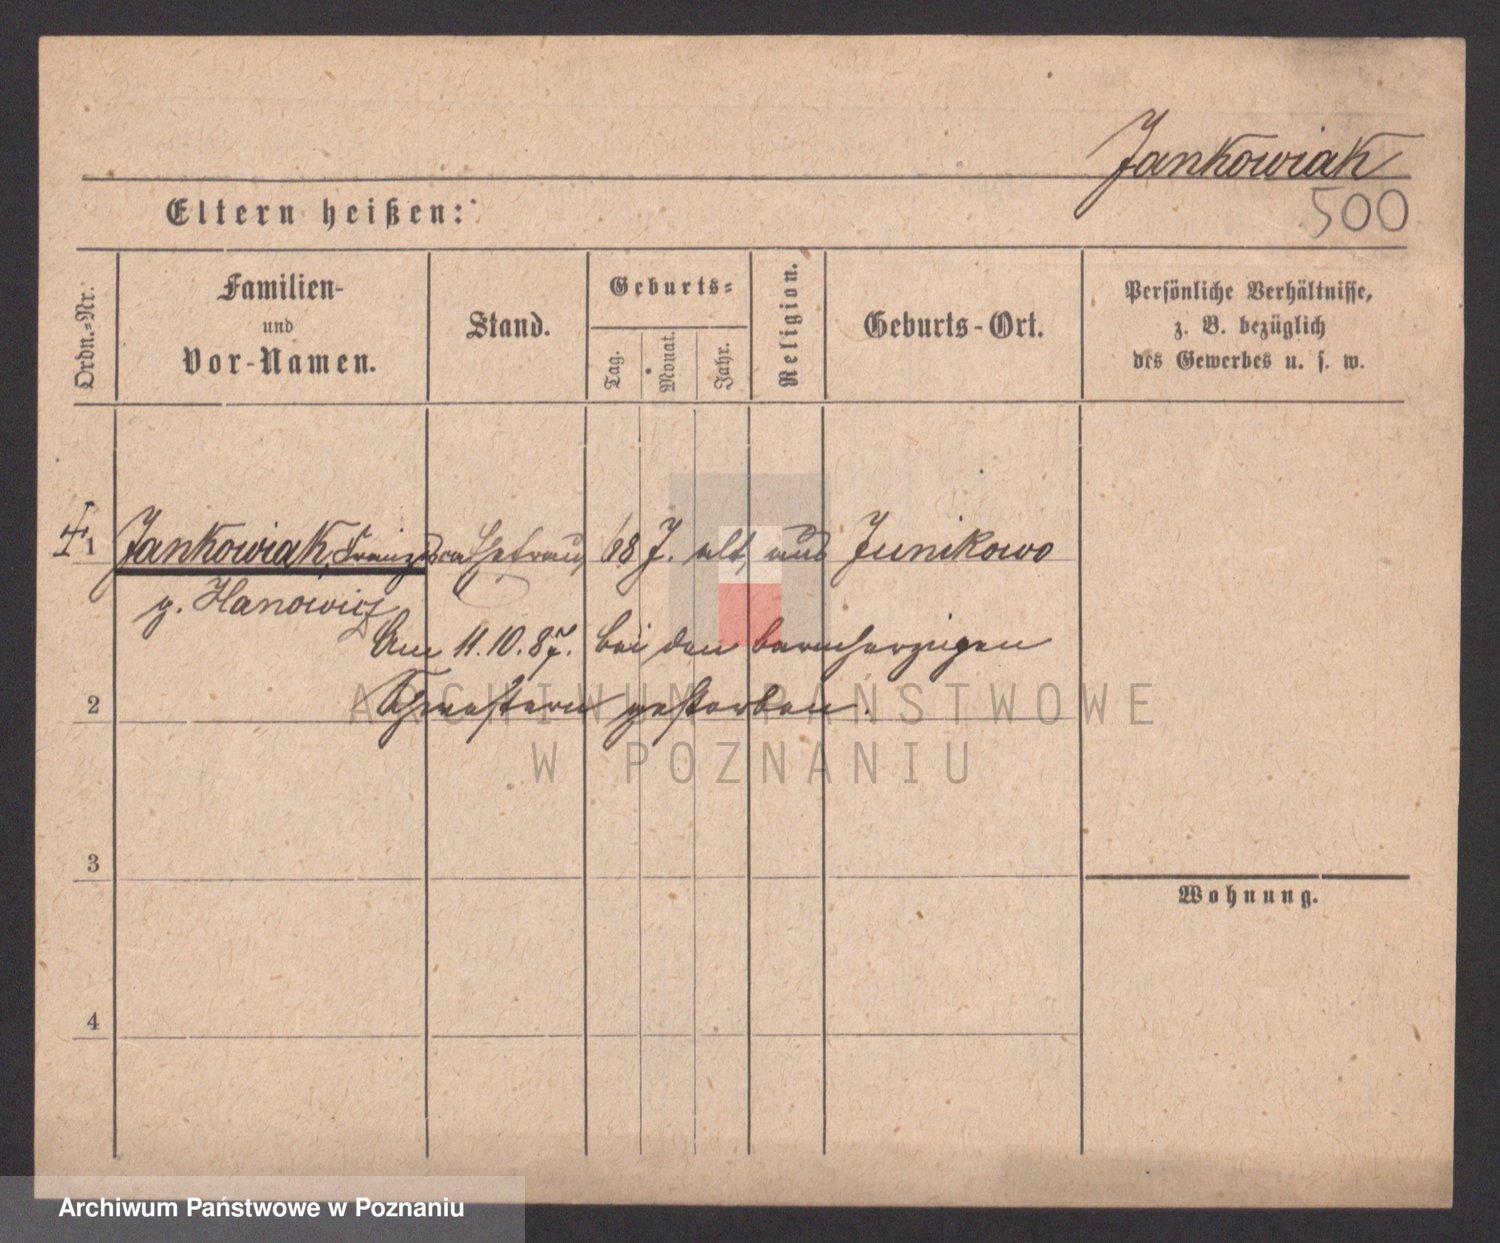 Jankowiak
500
Eltern heißen:
Ordn.-Nr.
Familien-
und
Vor-Namen.
Stand.
Geburts-
Tag.
Monat.
Jahr.
Religion.
Geburts-Ort.
Persönliche Verhältnisse,
z. B. bezüglich
des Gewerbes u. s. w.
1 Jankowiak, Franziska Ehefrau, 68 J. alt, aus Junikowo
g. Hanowicz
Am 11.10.87. bei den barmherzigen
2 Schwestern gestorben.
ARCHIWUM PAŃSTWOWE
W POZNANIU
3
Wohnung.
4
Archiwum Państwowe w Poznaniu